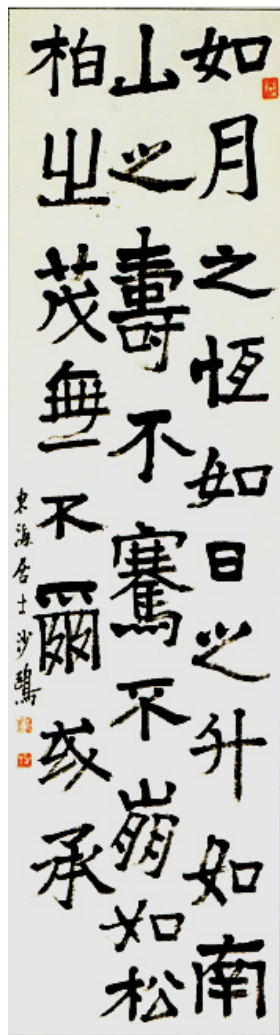 如月之恆如日之升如南
山之壽不騫不崩如松
柏之茂無不爾或承
東海居士沙鷗